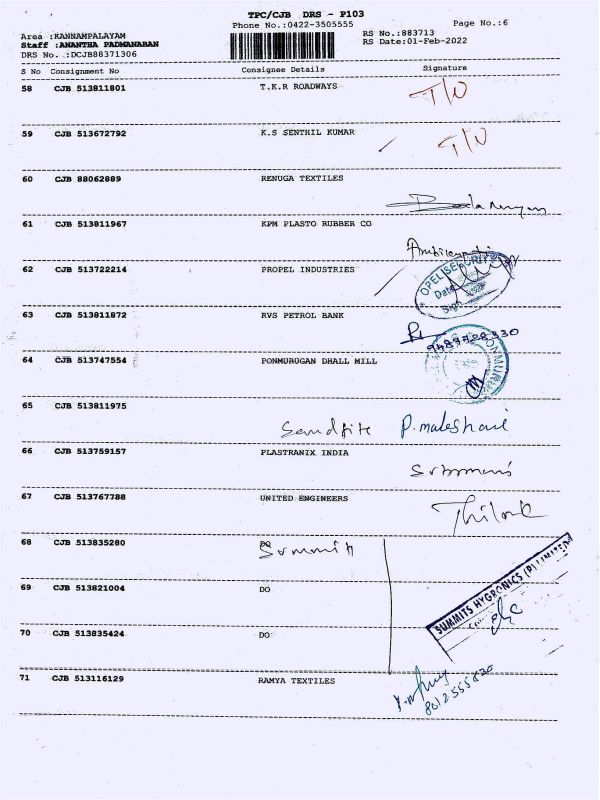 TPC/CJB DRS - P103
Phone No.:0422-3505555
Page No.:6
Area :KANNAMPALAYAM
Staff :ANANTHA PADMANABAN
DRS No. :DCJB88371306
RS No.:883713
RS Date:01-Feb-2022
S No Consignment No Consignee Details Signature
58 CJB 513811801 T.K.R ROADWAYS T/N
59 CJB 513672792 K.S SENTHIL KUMAR T/N
60 CJB 88062889 RENUGA TEXTILES
61 CJB 513811967 KPM PLASTO RUBBER CO
62 CJB 513722214 PROPEL INDUSTRIES
63 CJB 513811872 RVS PETROL BANK
64 CJB 513747554 PONMURUGAN DHALL MILL
65 CJB 513811975
66 CJB 513759157 PLASTRANIX INDIA
67 CJB 513767788 UNITED ENGINEERS
68 CJB 513835280
69 CJB 513821004 DO
SUMMITS HYGRONICS (P) LIMITED
70 CJB 513835424 DO
71 CJB 513116129 RAMYA TEXTILES